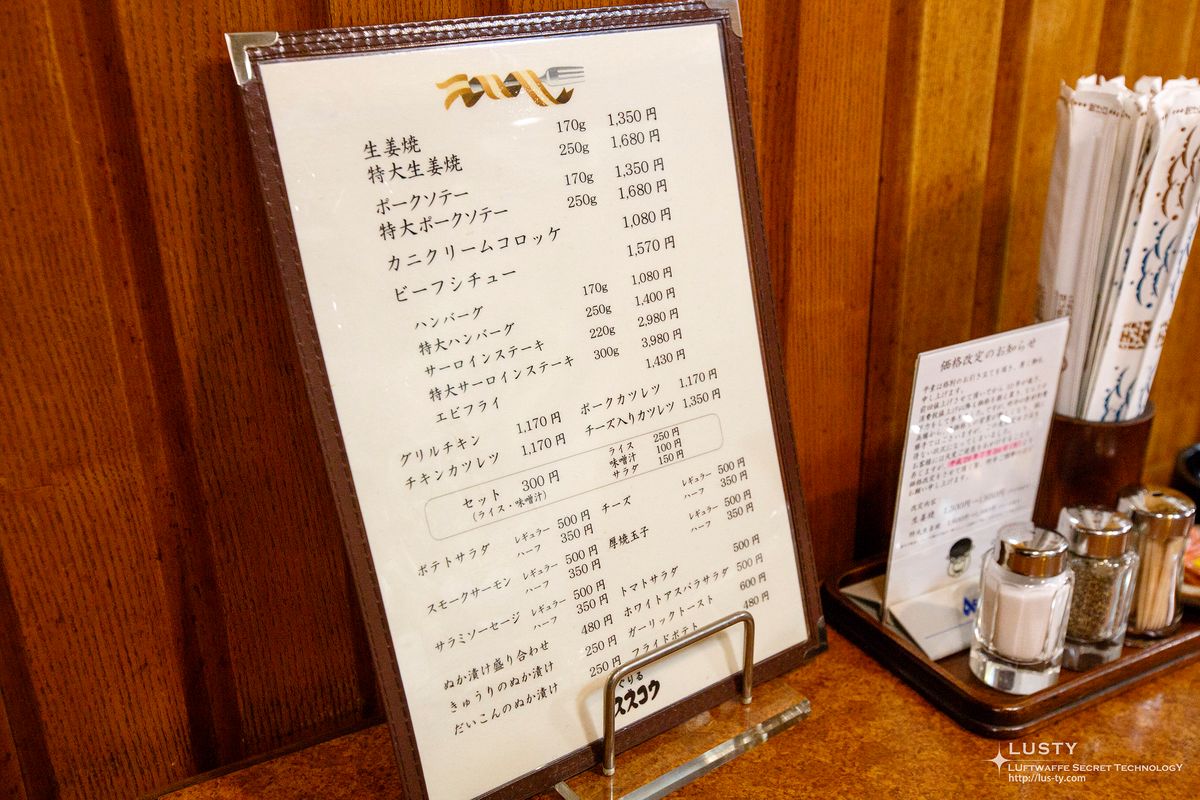 生姜焼 170g 1,350円
特大生姜焼 250g 1,680円
ポークソテー 170g 1,350円
特大ポークソテー 250g 1,680円
カニクリームコロッケ 1,080円
ビーフシチュー 1,570円
ハンバーグ 170g 1,080円
特大ハンバーグ 250g 1,400円
サーロインステーキ 220g 2,980円
特大サーロインステーキ 300g 3,980円
エビフライ 1,430円
グリルチキン 1,170円 ポークカツレツ 1,170円
チキンカツレツ 1,170円 チーズ入りカツレツ 1,350円
セット 300円
(ライス・味噌汁)
ライス 250円
味噌汁 100円
サラダ 150円
ポテトサラダ レギュラー 500円 チーズ レギュラー 500円
ハーフ 350円 ハーフ 350円
スモークサーモン レギュラー 500円 厚焼玉子 レギュラー 500円
ハーフ 350円 ハーフ 350円
サラミソーセージ レギュラー 500円 トマトサラダ 500円
ハーフ 350円 ホワイトアスパラサラダ 500円
ぬか漬け盛り合わせ 480円 ガーリックトースト 600円
きゅうりのぬか漬け 250円 フライドポテト 480円
だいこんのぬか漬け 250円
ぐりる
ススコウ
価格改定のお知らせ
申し上げます。
LUSTY
LUFTWAFFE SECRET TECHNOLOGY
http://lus-ty.com